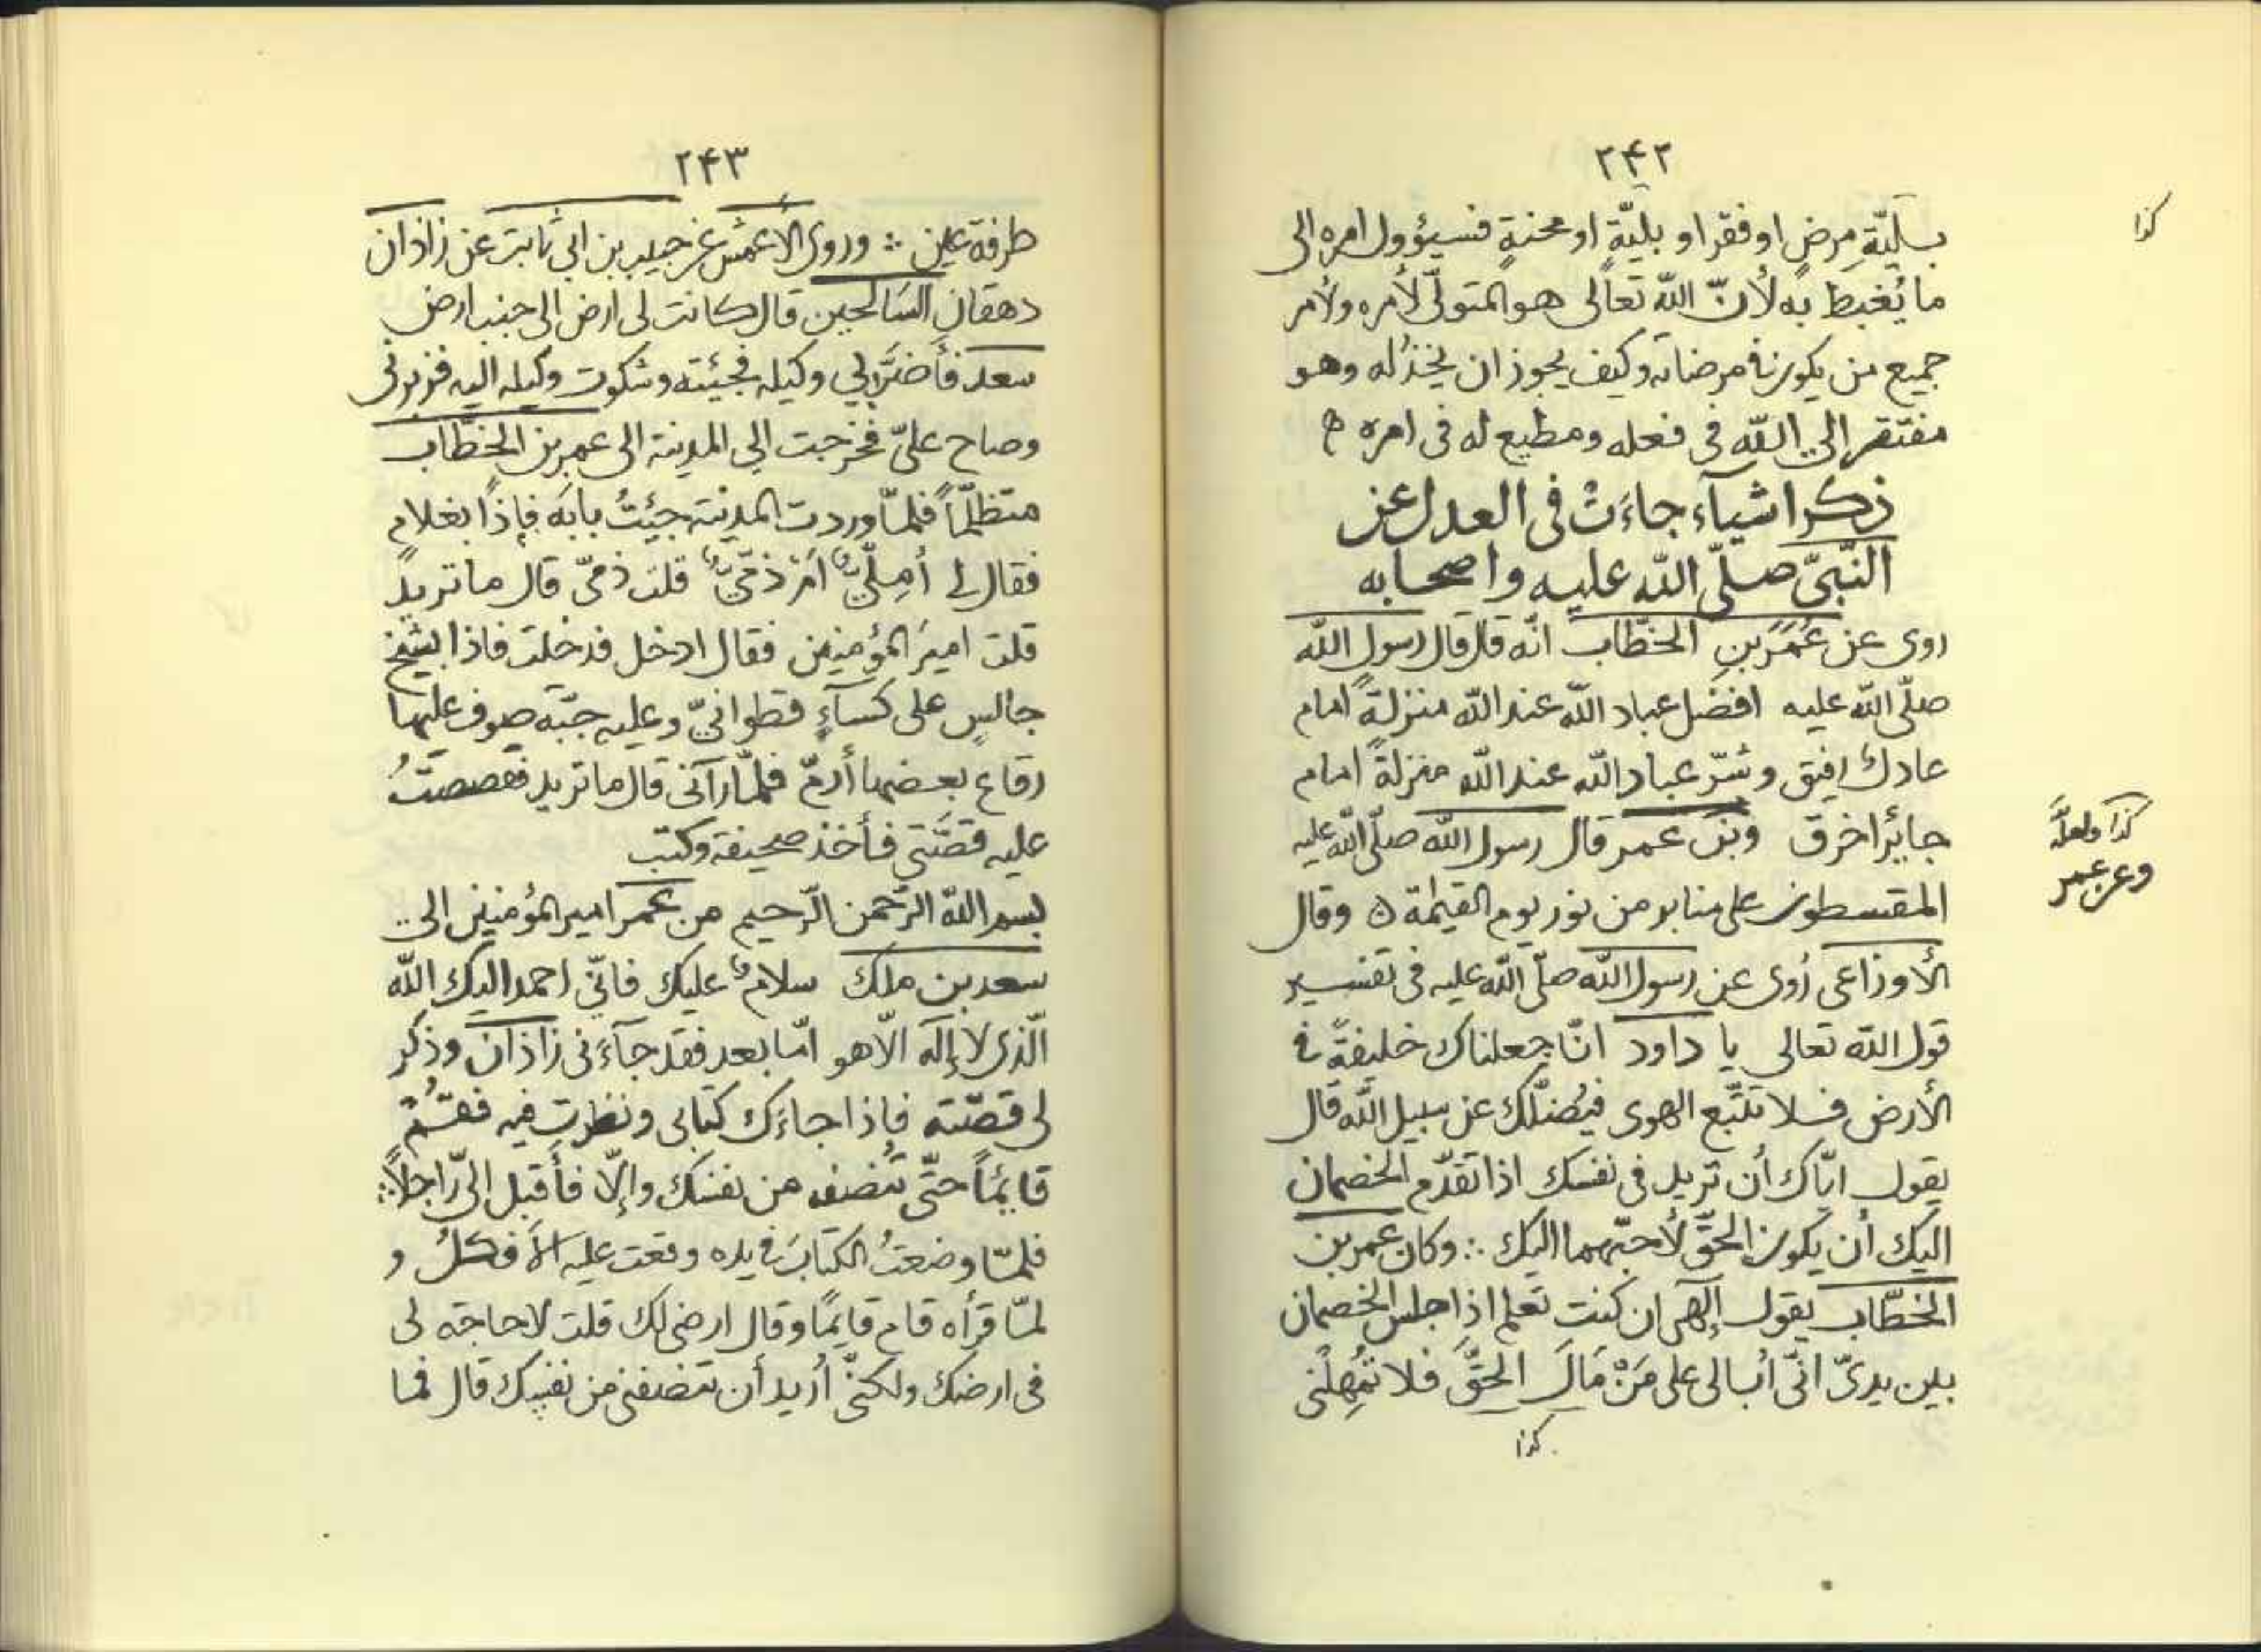 ۲۴۲
كذا
بسليّةِ مرضٍ او فقر او بليّةٍ او محنةٍ فسيؤول امره الى
ما يُغبط به لأنّ اللّه تعالى هو المتولّى لأمره ولأمر
جميع من يكون فى مرضاته وكيف يجوز ان يخذله وهو
مفتقر الى اللّه فى فعله ومطيع له فى امره
ذكر اشيآء جاءَتْ فى العدل عن
النّبىّ صلّى اللّه عليه واصحابه
روى عن عُمَر بنِ الخطّاب انّه قال قال رسول اللّه
صلّى اللّه عليه افضل عباد اللّه عند اللّه منزلةً امام
عادل رفيق وشرّ عباد اللّه عند اللّه منزلةً امام
جائر اخرق وبن عمر قال رسول اللّه صلّى اللّه عليه
كذا ولعلّه
وعن عمر
المقسطون على منابر من نور يوم القيٰمة ٥ وقال
الأوزاعى رُوى عن رسول اللّه صلّى اللّه عليه فى تفسير
قول اللّه تعالى يا داود انّا جعلناك خليفةً فى
الأرض فلا تتّبع الهوى فيُضلّك عن سبيل اللّه قال
يقول ايّاك أن تريد فى نفسك اذا تقدّم الخصمان
اليك أن يكون الحقّ لأحبّهما اليك ∴ وكان عمر بن
الخطّاب يقول إلٓهى ان كنت تعلم اذا جلس الخصمان
بين يدىّ انّى أبالى على مَنْ مَالَ الحقَّ فلا تُمهِلْنى
كذا
۲۴۳
طرفة عين ∴ وروى الأعمش عن حبيب بن ابى ثابت عن زاذان
دهقان السَالحين قال كانت لى ارض الى جنب ارض
سعد فأضرَّ بي وكيله فجيئته وشكوت وكيله اليه فزبرنى
وصاح علىّ فخرجت الي المدينة الى عمر بن الخطّاب
متظلّماً فلمّا وردت المدينة جيئتُ بابَه فإذا بغلامٍ
فقال لى أمِلّىٌّ امْ ذمّىٌّ قلت ذمّىّ قال ما تريد
قلت اميرَ المؤمنين فقال ادخل فدخلت فاذا بشيخ
جالسٍ على كسآءٍ قطوانىّ وعليه جبّة صوف عليها
رقاع بعضها أدمٌ فلمّا رآنى قال ما تريد فقصصتُ
عليه قصّتى فأخذ صحيفة وكتب
بسم اللّه الرّحمن الرّحيم من عمر امير المؤمنين الى
سعد بن ملك سلامٌ عليك فانّي احمد اليك اللّه
الّذى لا إلٓه الّا هو امّا بعد فقد جآءَنى زاذان وذكر
لى قصّته فإذا جاءَك كتابى ونظرت فيه فقُمْ
قايمًا حتّى تُنصف من نفسك وإلّا فأَقبل إلىّ راجلاً ∴
فلمّا وضعتُ الكتابَ فى يده وقعت عليه الأَفكلُ و
لمّا قرأه قام قايمًا وقال ارضى لك قلت لا حاجة لى
فى ارضك ولكنّى أريد أن تنصفنى من نفسِك قال فما